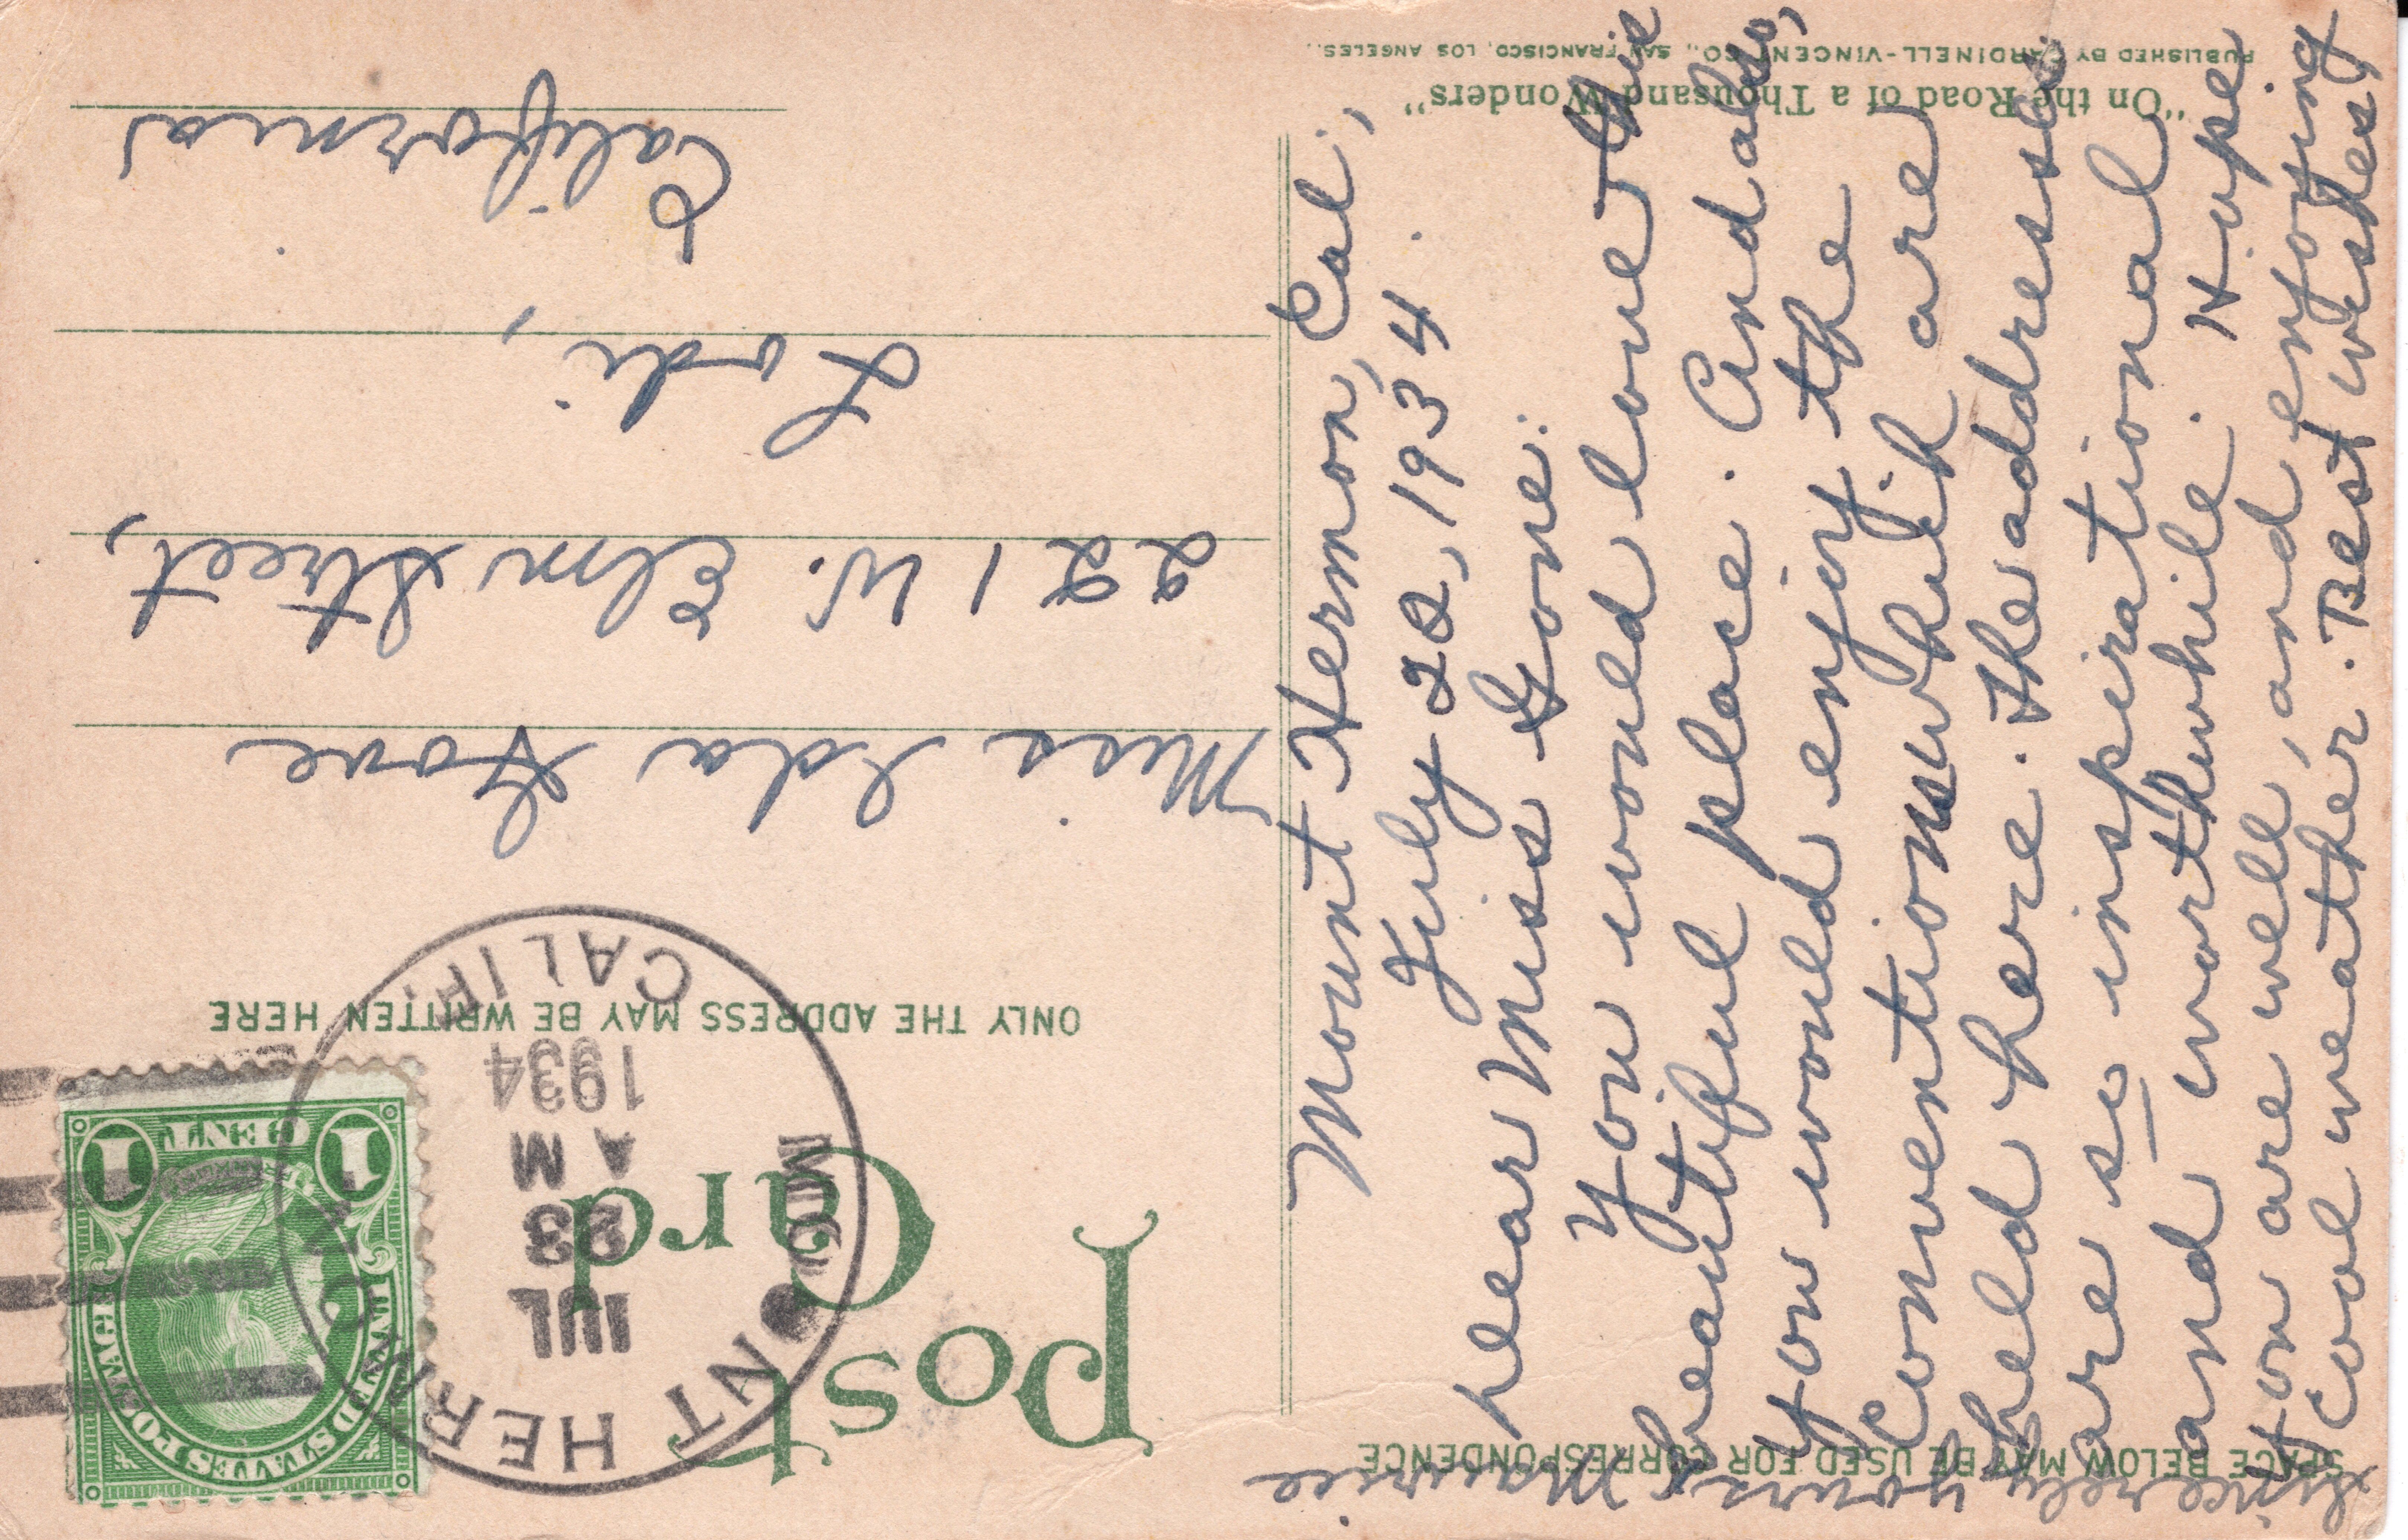 "On the Road of a Thousand Wonders"
PUBLISHED BY CARDINELL-VINCENT CO., SAN FRANCISCO, LOS ANGELES.
SPACE BELOW MAY BE USED FOR CORRESPONDENCE
Mount Hermon, Cal.,
July 22, 1934.
Dear Miss Gove:
You would love this
beautiful place. And also,
you would enjoy the
Conventions which are
held here. The addresses
are so inspirational
and worthwhile. Hope
you are well, and enjoying
cool weather. Best wishes,
Sincerely yours
Maurice.
Post
Card
ONLY THE ADDRESS MAY BE WRITTEN HERE
MOUNT HERMON
CALIF.
JUL
23
A M
1934
UNITED STATES POSTAGE
FRANKLIN
1 CENT 1
Miss Ida Gove
221 W. Elm Street,
Lodi,
California